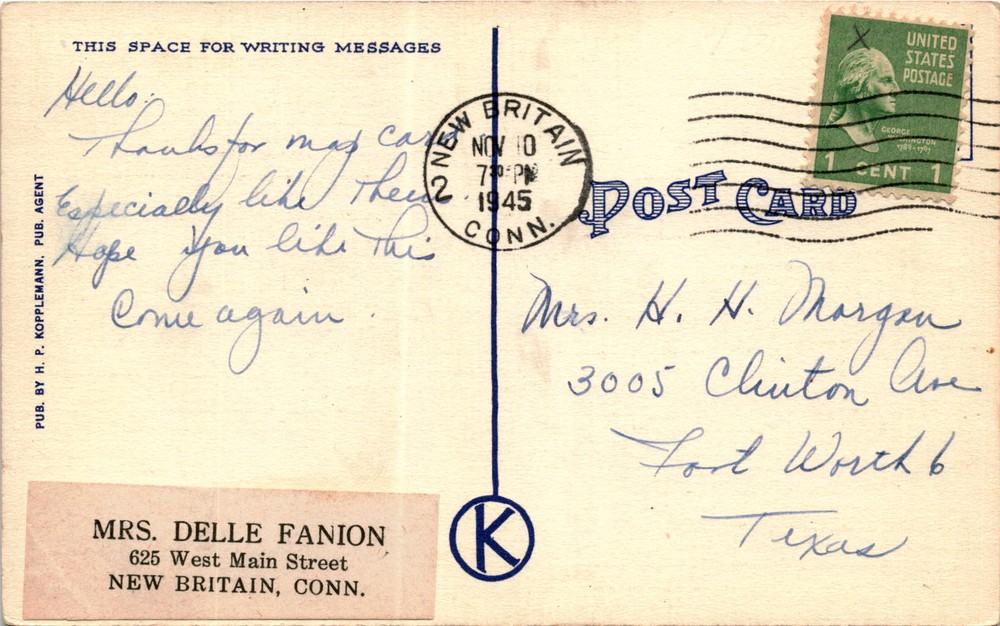 THIS SPACE FOR WRITING MESSAGES
Hello.
Thanks for map card
Especially like them.
Hope you like this
Come again.
PUB. BY H. P. KOPPLEMANN, PUB. AGENT
MRS. DELLE FANION
625 West Main Street
NEW BRITAIN, CONN.
NEW BRITAIN
NOV 10
7 30 PM
1945
2
CONN.
K
POST CARD
X
UNITED
STATES
POSTAGE
GEORGE
WASHINGTON
1789-1797
1 CENT 1
Mrs. H. H. Morgan
3005 Clinton Ave
Fort Worth 6
Texas